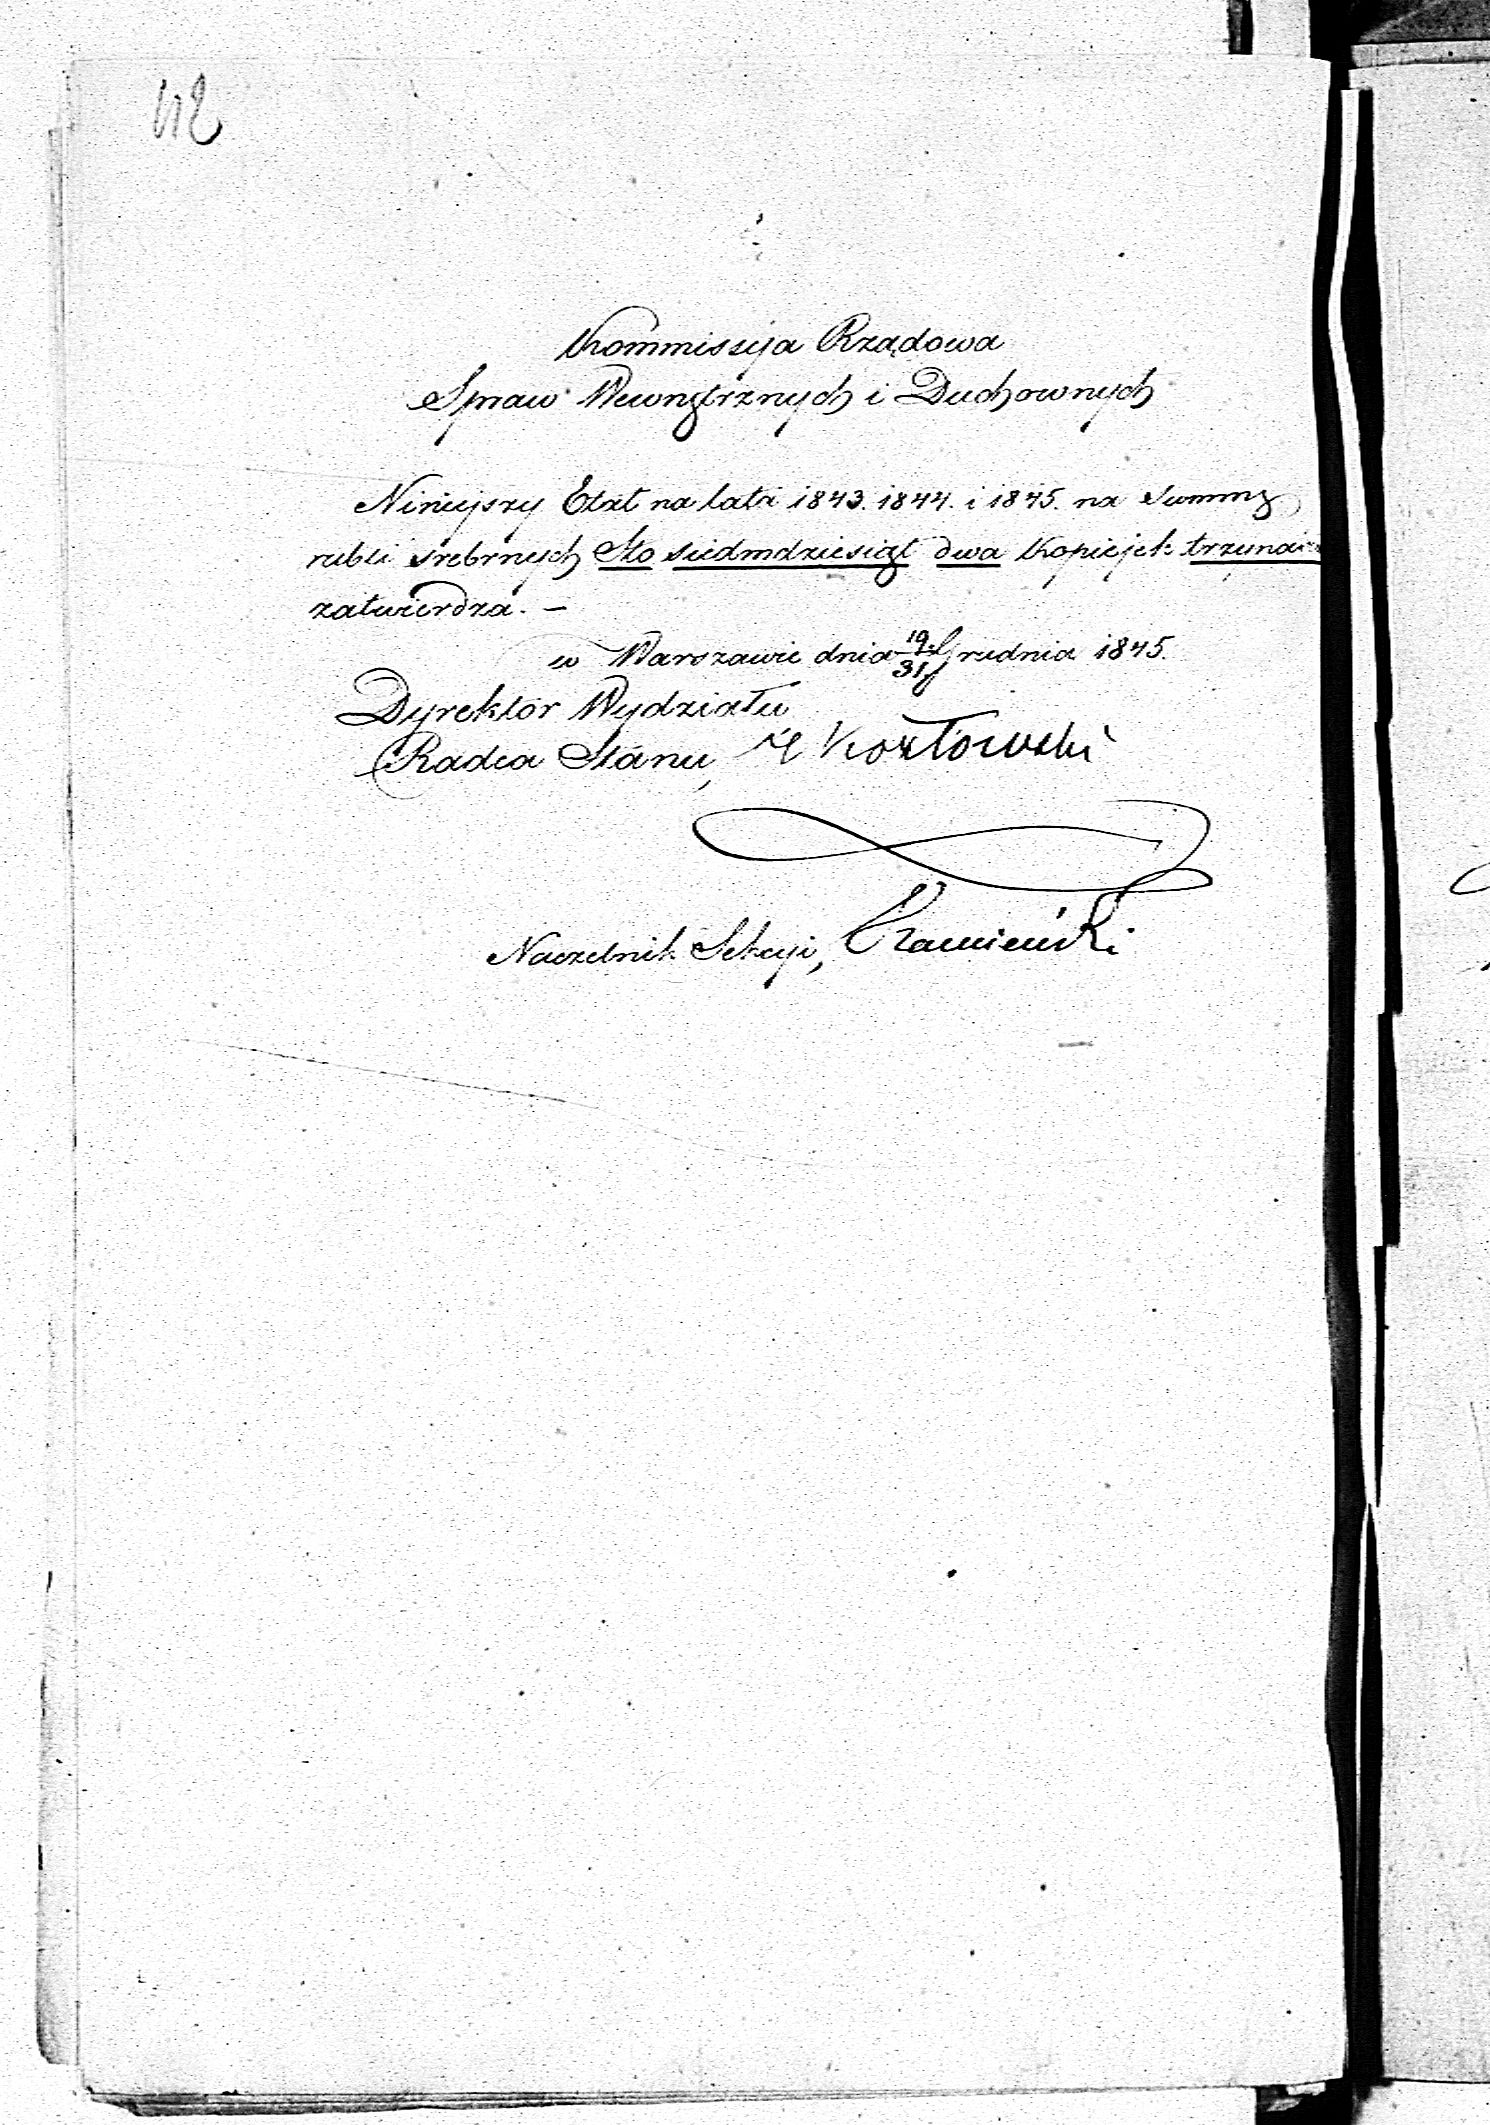 Kommissya Rządowa
Spraw Wewnętrznych i Duchownych
Niniejszy Etat na lata 1843. 1844. i 1845. na Summę
rubli srebrnych Sto siedmdziesiąt dwa Kopiejek trzyna
zatwierdza. —
w Warszawie dnia 19/31 Grudnia 1845.
Dyrektór Wydziału
Radca Stanu, Kozłowski
Naczelnik Sekcyi,